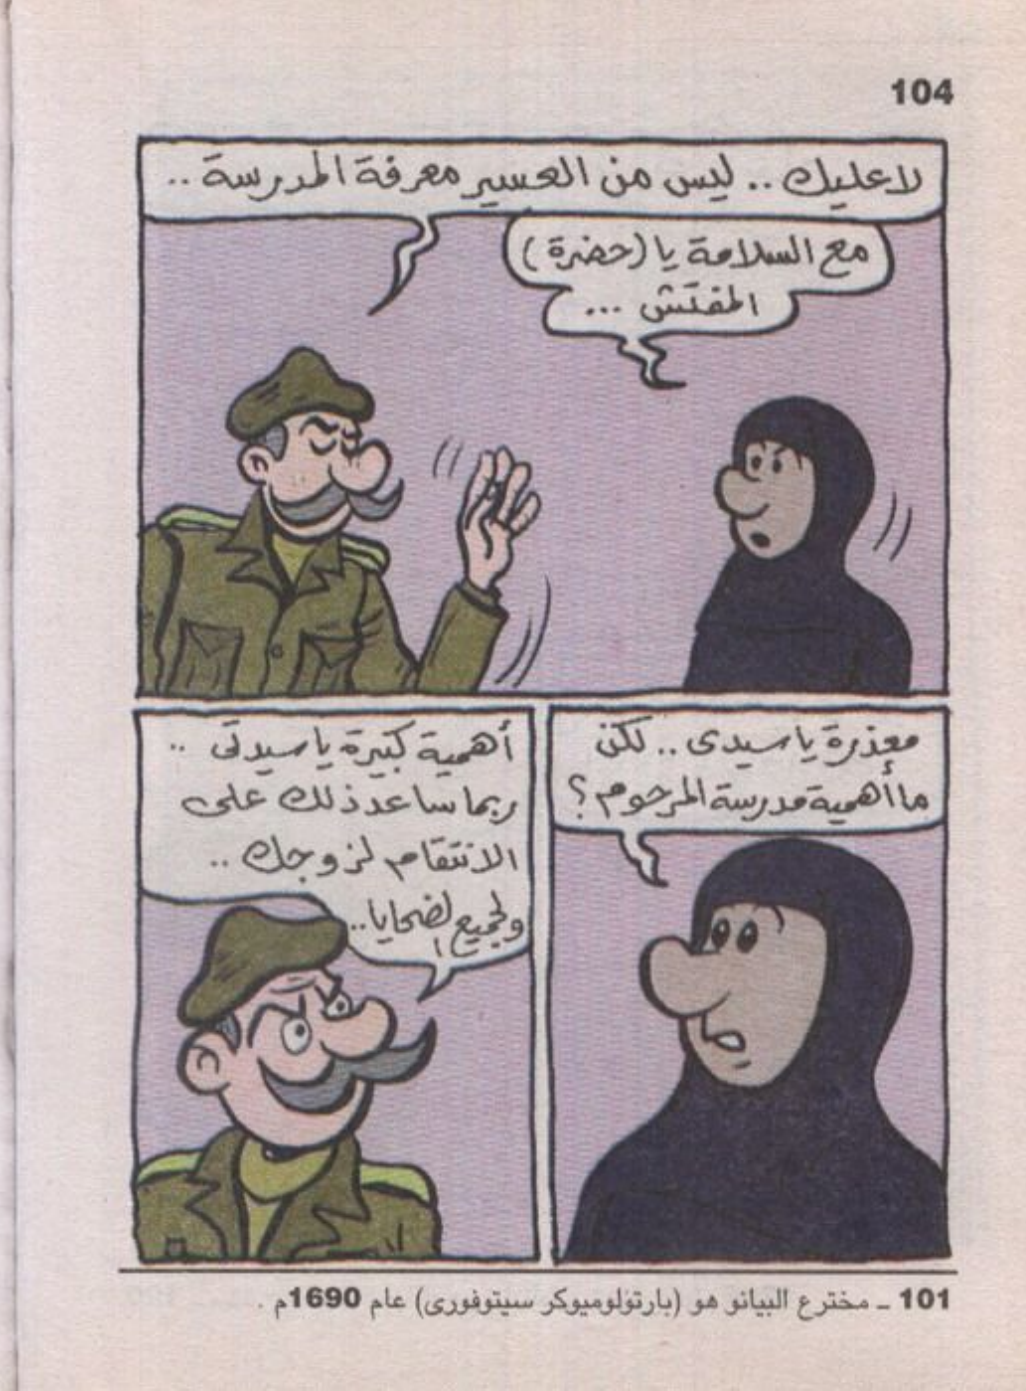 104
لا عليك .. ليس من العسير معرفة المدرسة ..
مع السلامة يا (حضرة)
المفتش ...
معذرة يا سيدى .. لكن
ما أهمية مدرسة المرحوم ؟
أهمية كبيرة يا سيدتى ..
ربما ساعد ذلك على
الانتقام لزوجك ..
ولجميع الضحايا ..
101 ـ مخترع البيانو هو (بارتولوميوكر سيتوفورى) عام 1690م .